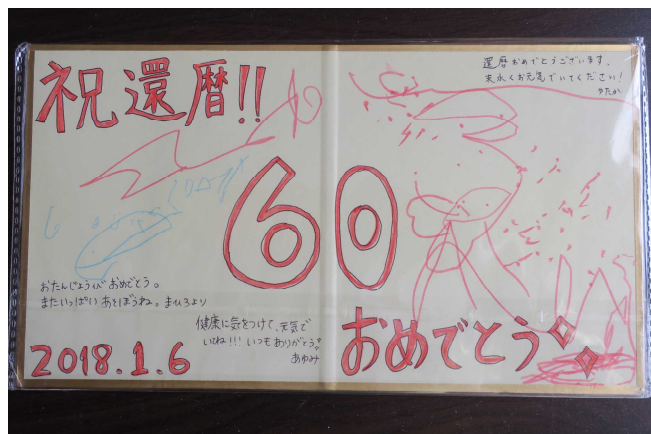 祝還暦!!
還暦おめでとうございます。
末永くお元気でいてください!
ゆたか
60
おたんじょうび おめでとう。
またいっぱい あそぼうね。まひろより
健康に気をつけて、元気で
いてね!!! いつもありがとう
あゆみ
おめでとう
2018.1.6